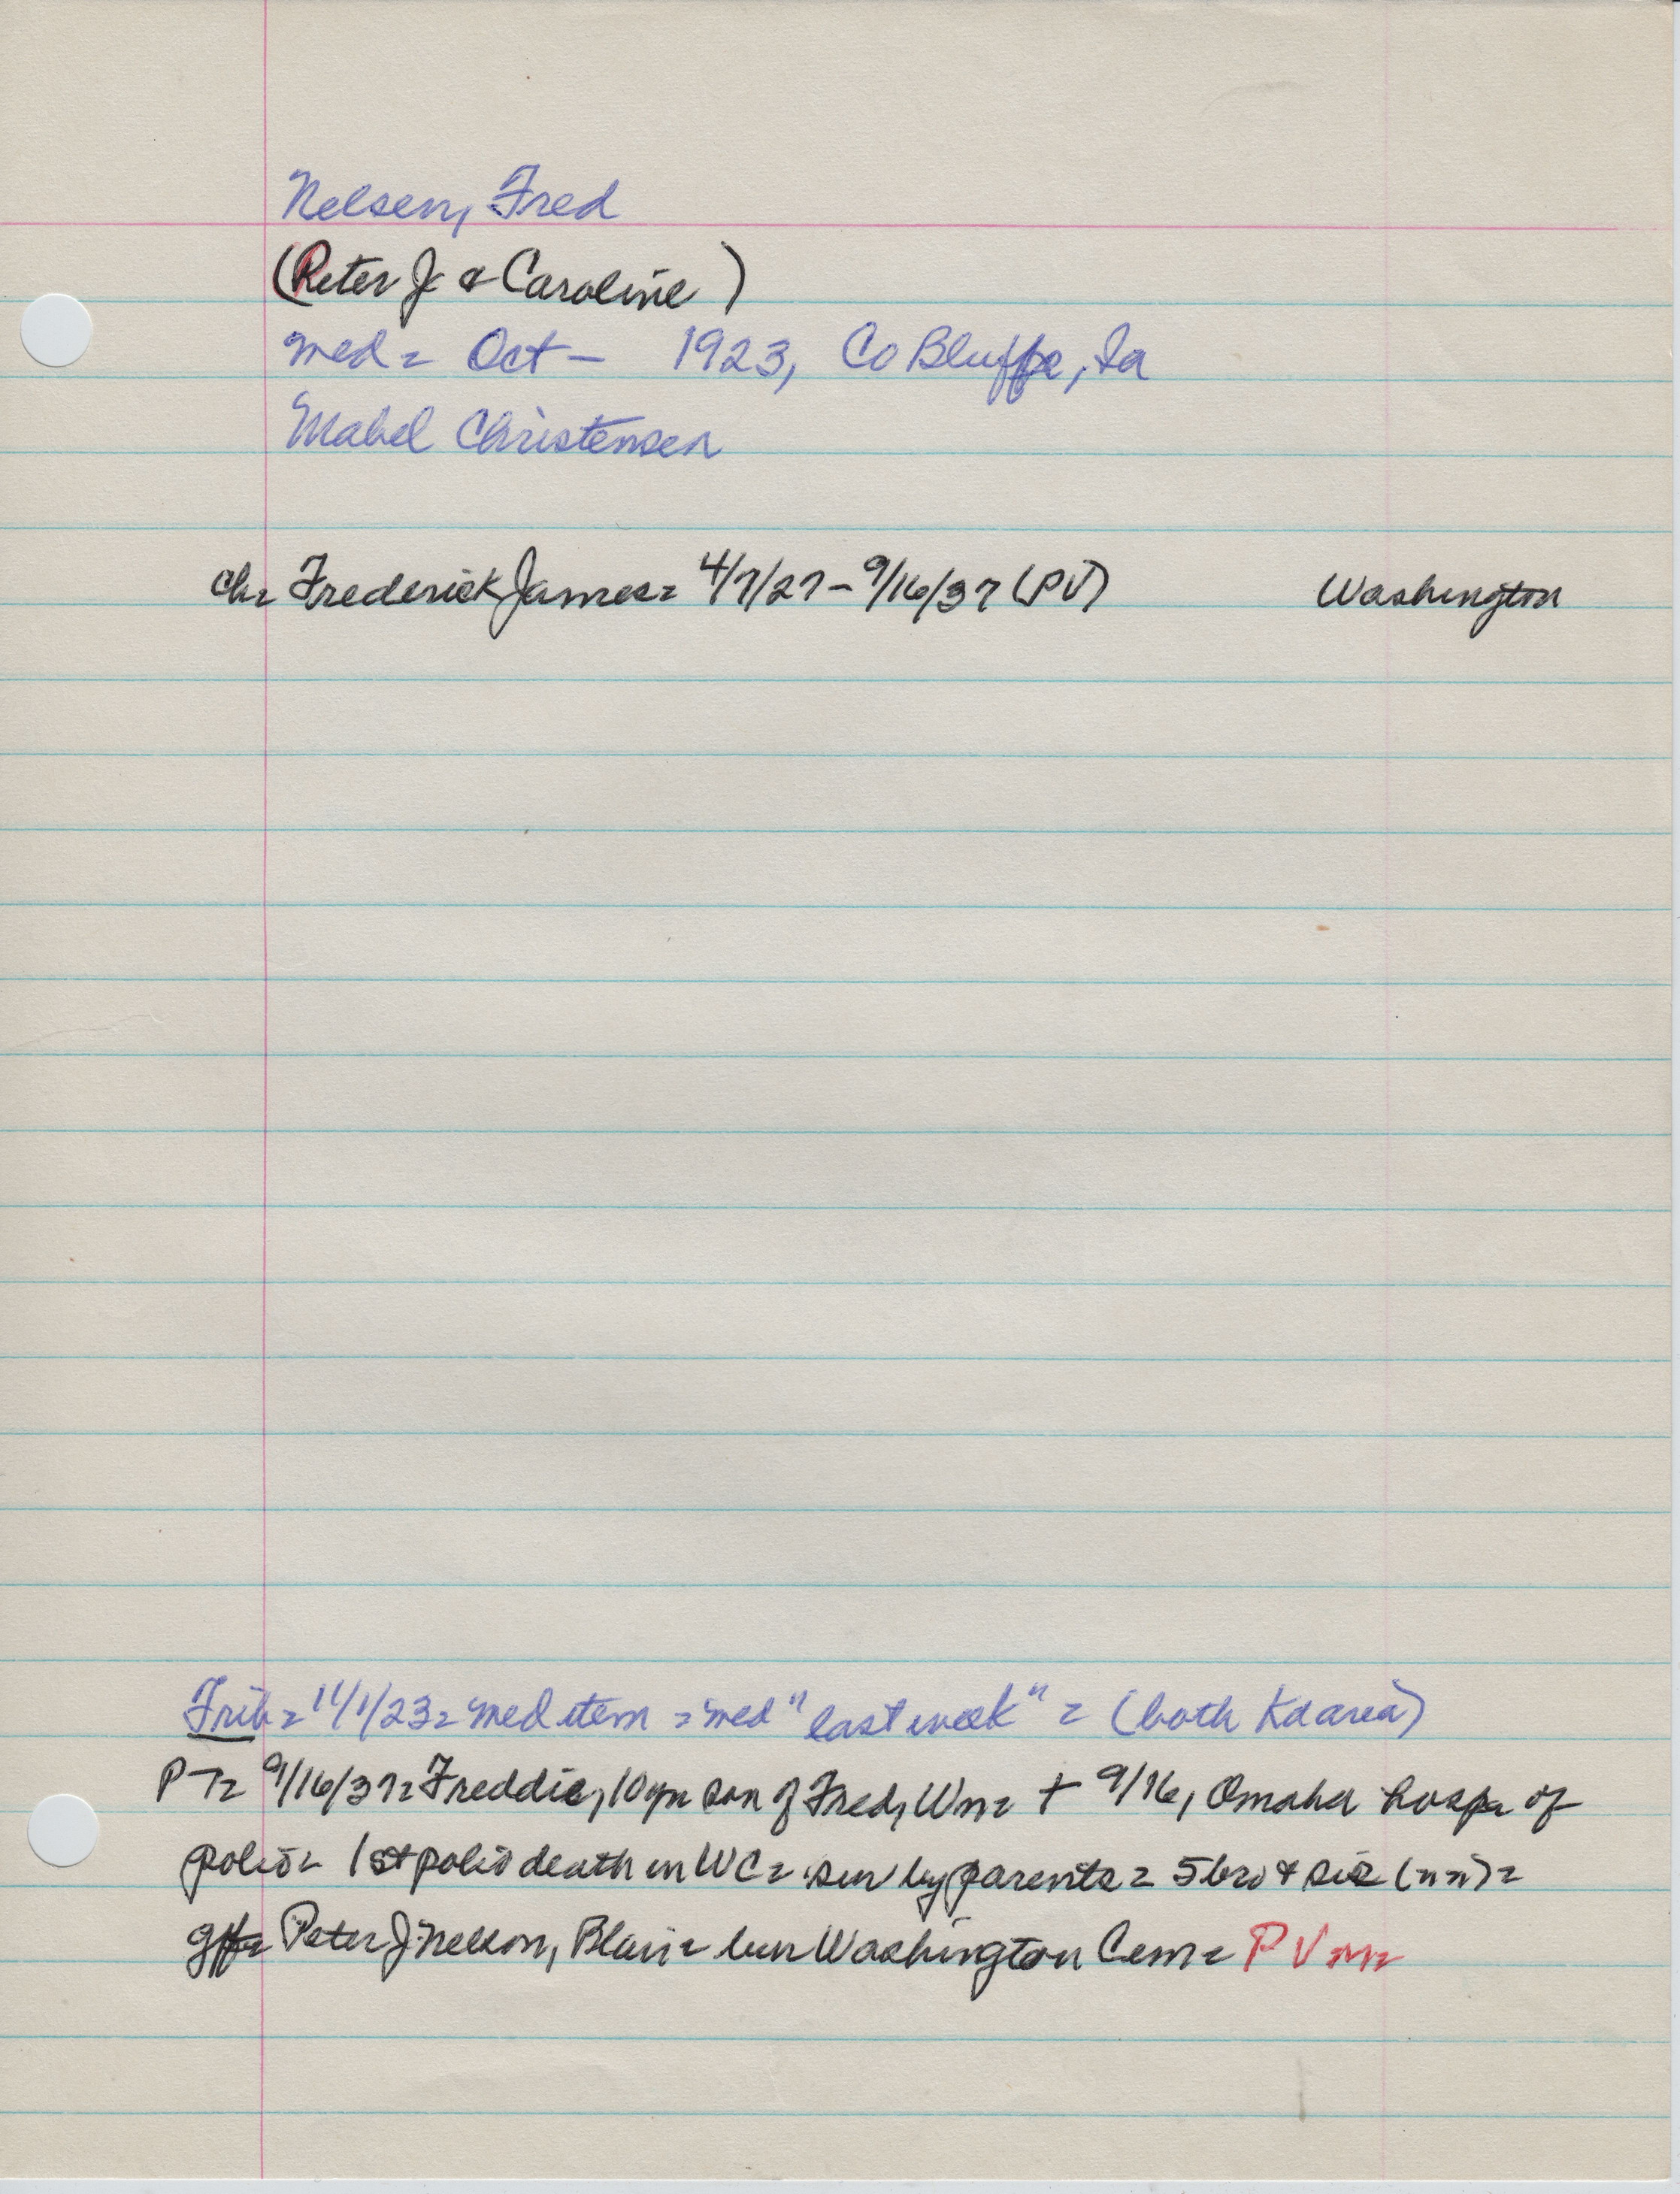 Nelsen, Fred
(Peter J & Caroline)
med = Oct - 1923, Co Bluffs, Ia
Mabel Christensen
ch = Frederick James = 4/7/27 - 9/16/37 (PV) Washington
Trib = 11/1/23 = med item = med "last week" = (both Kd area)
PT = 9/16/37 = Freddie, 10 yr son of Fred, Wn = + 9/16, Omaha hosp = of
polio = 1st polio death in WC = sur by parents = 5 bro & sis (nn) =
gff = Peter J Nelson, Blair = bur Washington Cem = PV nn =